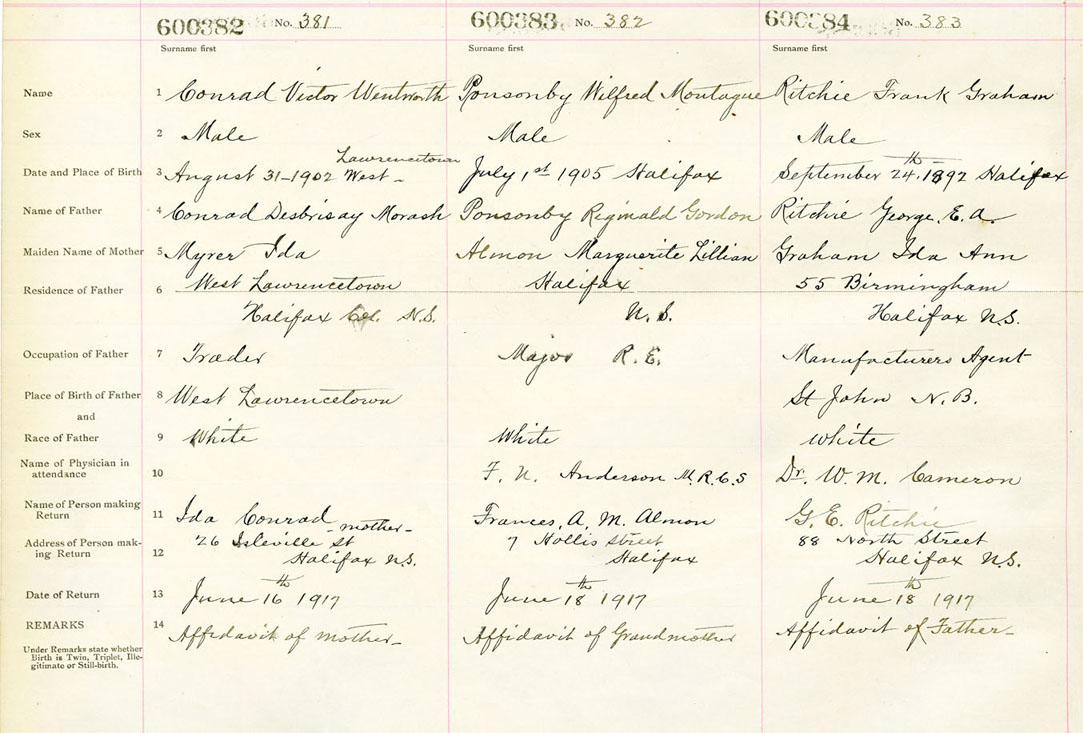 600382 No. 381 600383 No. 382 600384 No. 383
Surname first Surname first Surname first
Name 1 Conrad Victor Wentworth Ponsonby Wilfred Montague Ritchie Frank Graham
Sex 2 Male Male Male
Date and Place of Birth 3 August 31-1902 Lawrencetown West- July 1st 1905 Halifax September 24th. 1892 Halifax
Name of Father 4 Conrad Desbrisay Morash Ponsonby Reginald Gordon Ritchie George. E. A.
Maiden Name of Mother 5 Myrer Ida Almon Marguerite Lillian Graham Ida Ann
Residence of Father 6 West Lawrencetown Halifax 55 Birmingham
Halifax Co. N.S. N.S. Halifax N.S.
Occupation of Father 7 Trader Major R.E. Manufacturers Agent
Place of Birth of Father 8 West Lawrencetown St John N.B.
and
Race of Father 9 White White White
Name of Physician in
attendance 10 F. N. Anderson M.R.C.S Dr. W. M. Cameron
Name of Person making
Return 11 Ida Conrad - mother- Frances, A. M. Almon G. E. Ritchie
Address of Person mak- 26 Isleville St 7 Hollis Street 88 North Street
ing Return 12 Halifax N.S. Halifax Halifax N.S.
Date of Return 13 June 16th 1917 June 18th 1917 June 18th 1917
REMARKS 14 Affidavit of Mother- Affidavit of Grandmother Affidavit of Father-
Under Remarks state whether
Birth is Twin, Triplet, Ille-
gitimate or Still-birth.